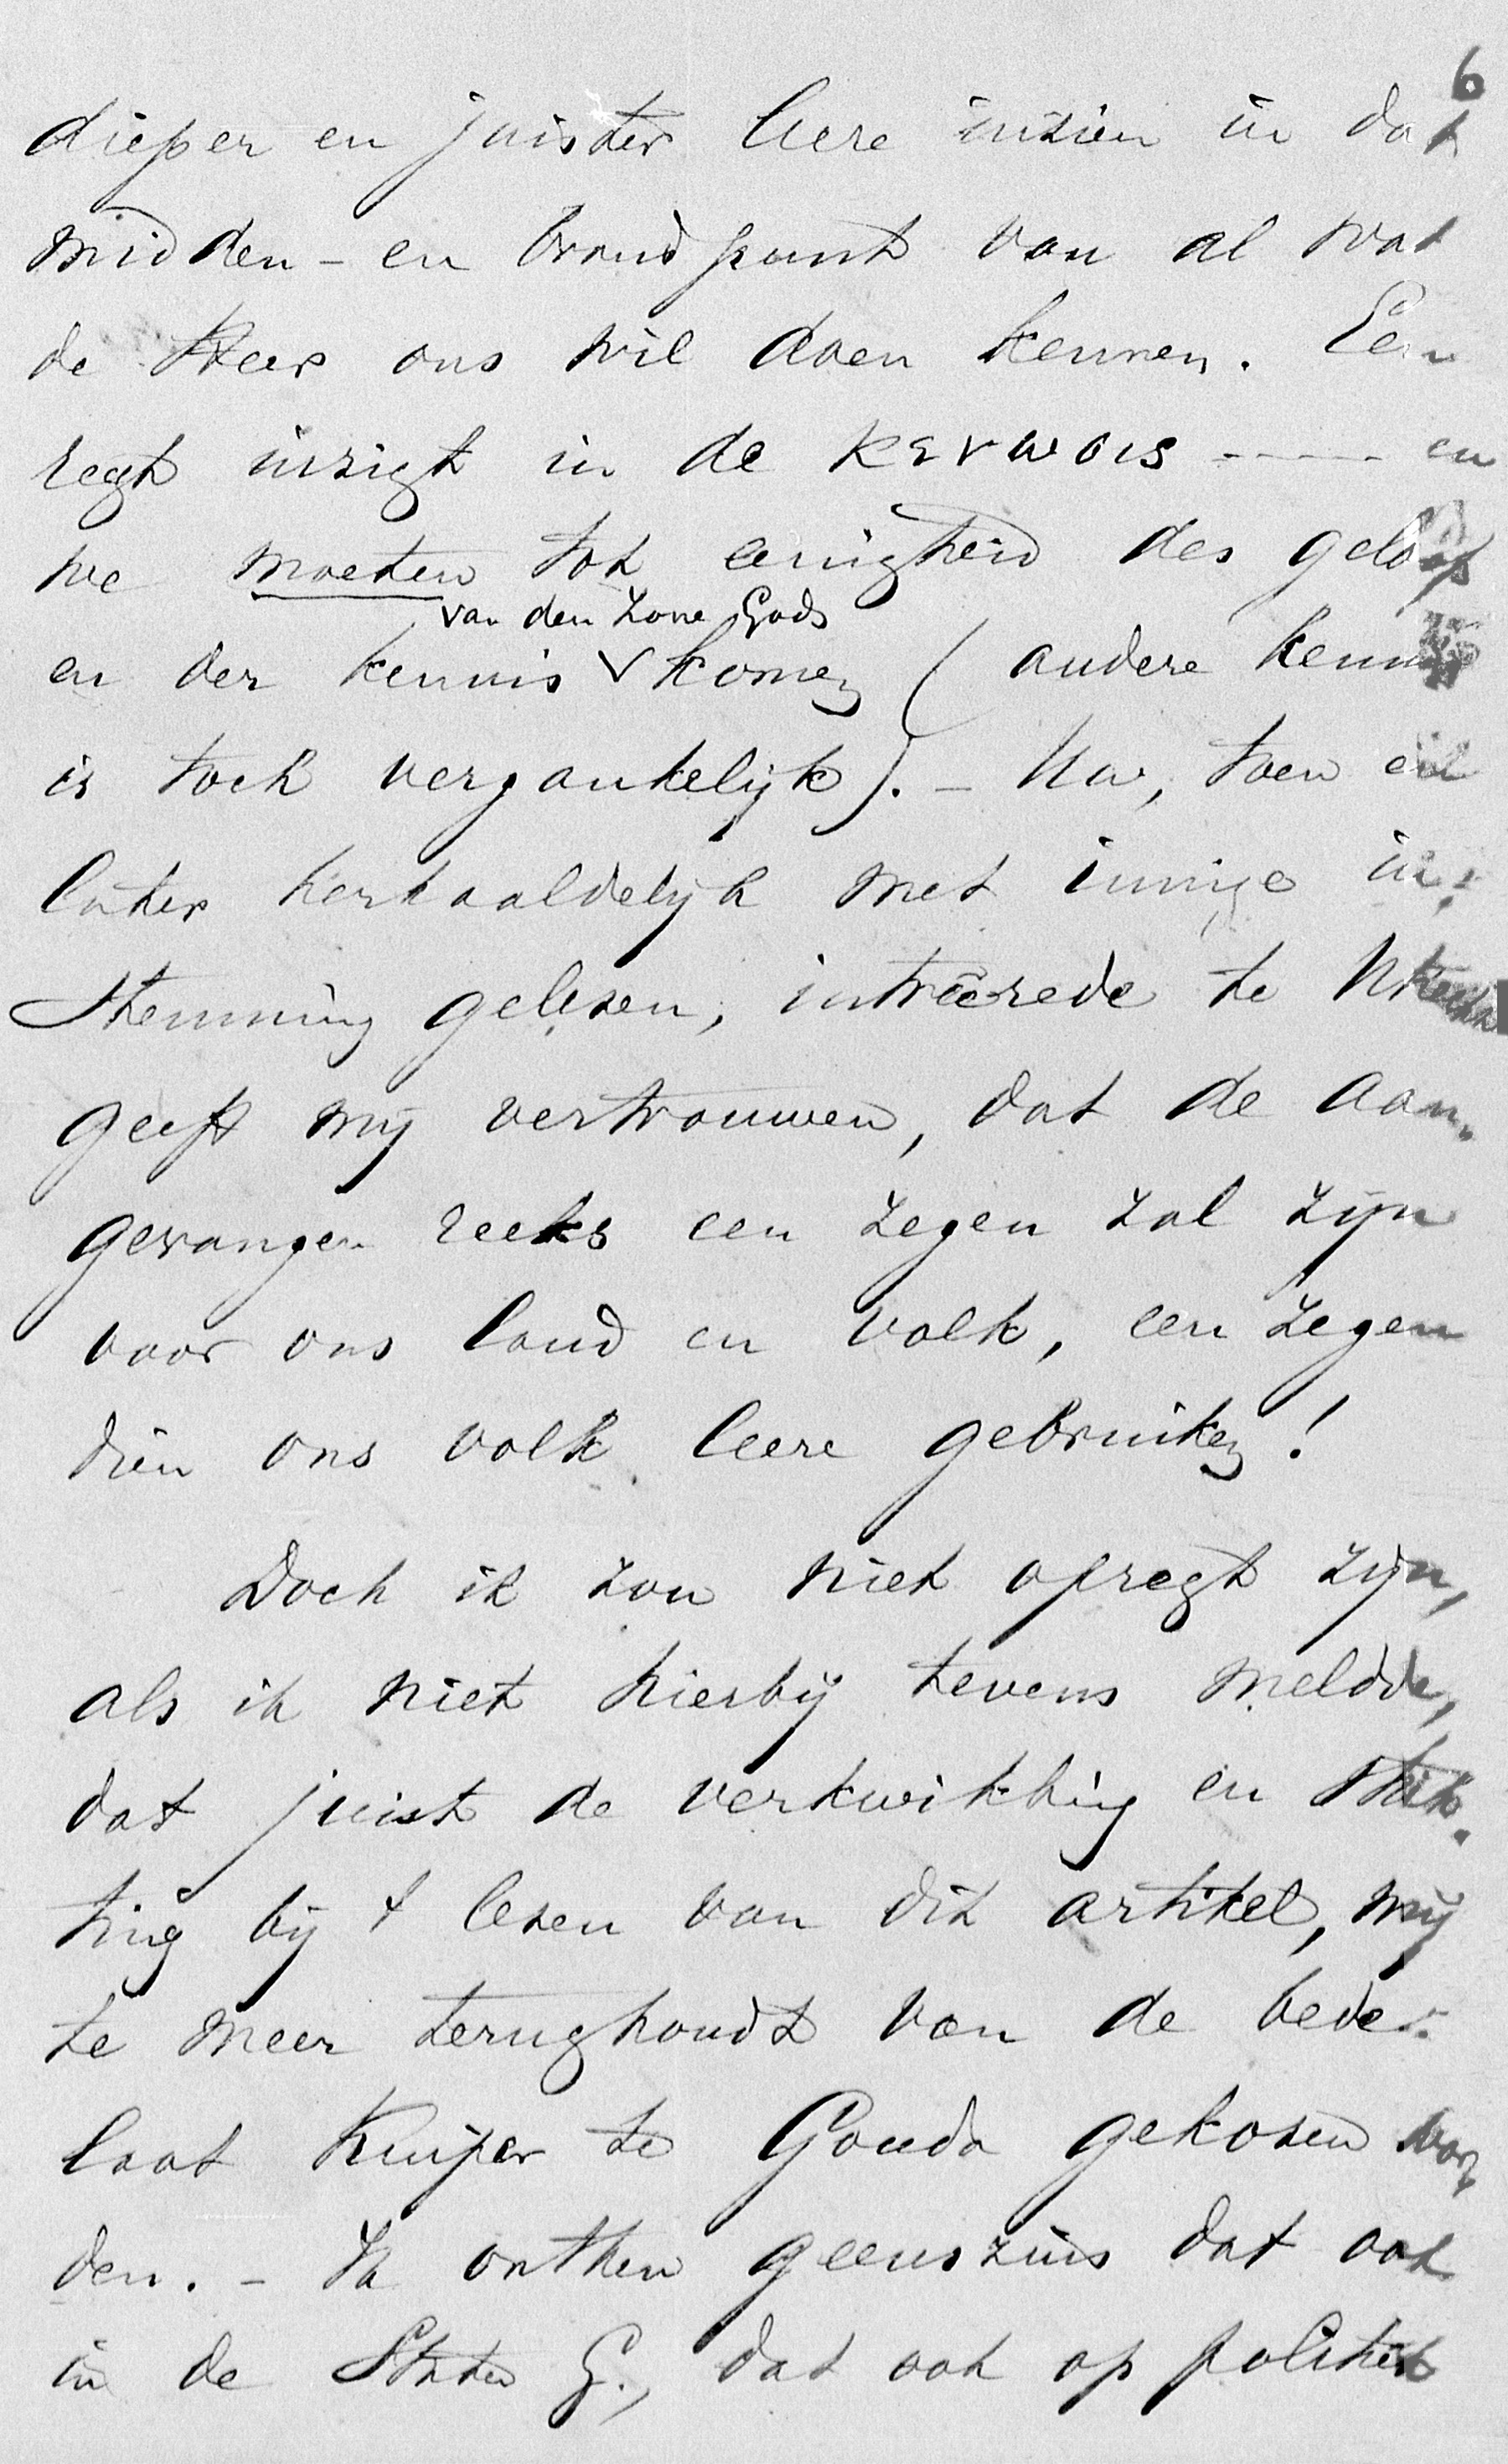 6
dieper en juister leere inzien in dat
midden - en brandpunt van al wat
de Heer ons wil doen kennen. Een
regt inzigt in de κενωσις ----- en
we moeten tot eenigheid des geloofs
van den Zone Gods
en der kennis v komen (andere kennis
is toch vergankelijk). - Uw, toen en
later herhaaldelijk met innige in-
stemming gelezen, intreêrede te Utrecht
geeft mij vertrouwen, dat de aan-
gevangen reeks een zegen zal zijn
voor ons land en volk, een zegen
dien ons volk leere gebruiken!
Doch ik zou niet opregt zijn,
als ik niet hierbij tevens meldde,
dat juist de verkwikking en stich-
ting bij 't lezen van dit artikel, mij
te meer terughoudt van de bede:
laat Kuijper te Gouda gekozen wor-
den. - Ik ontken geenszins dat ook
in de Staten G., dat ook op politiek